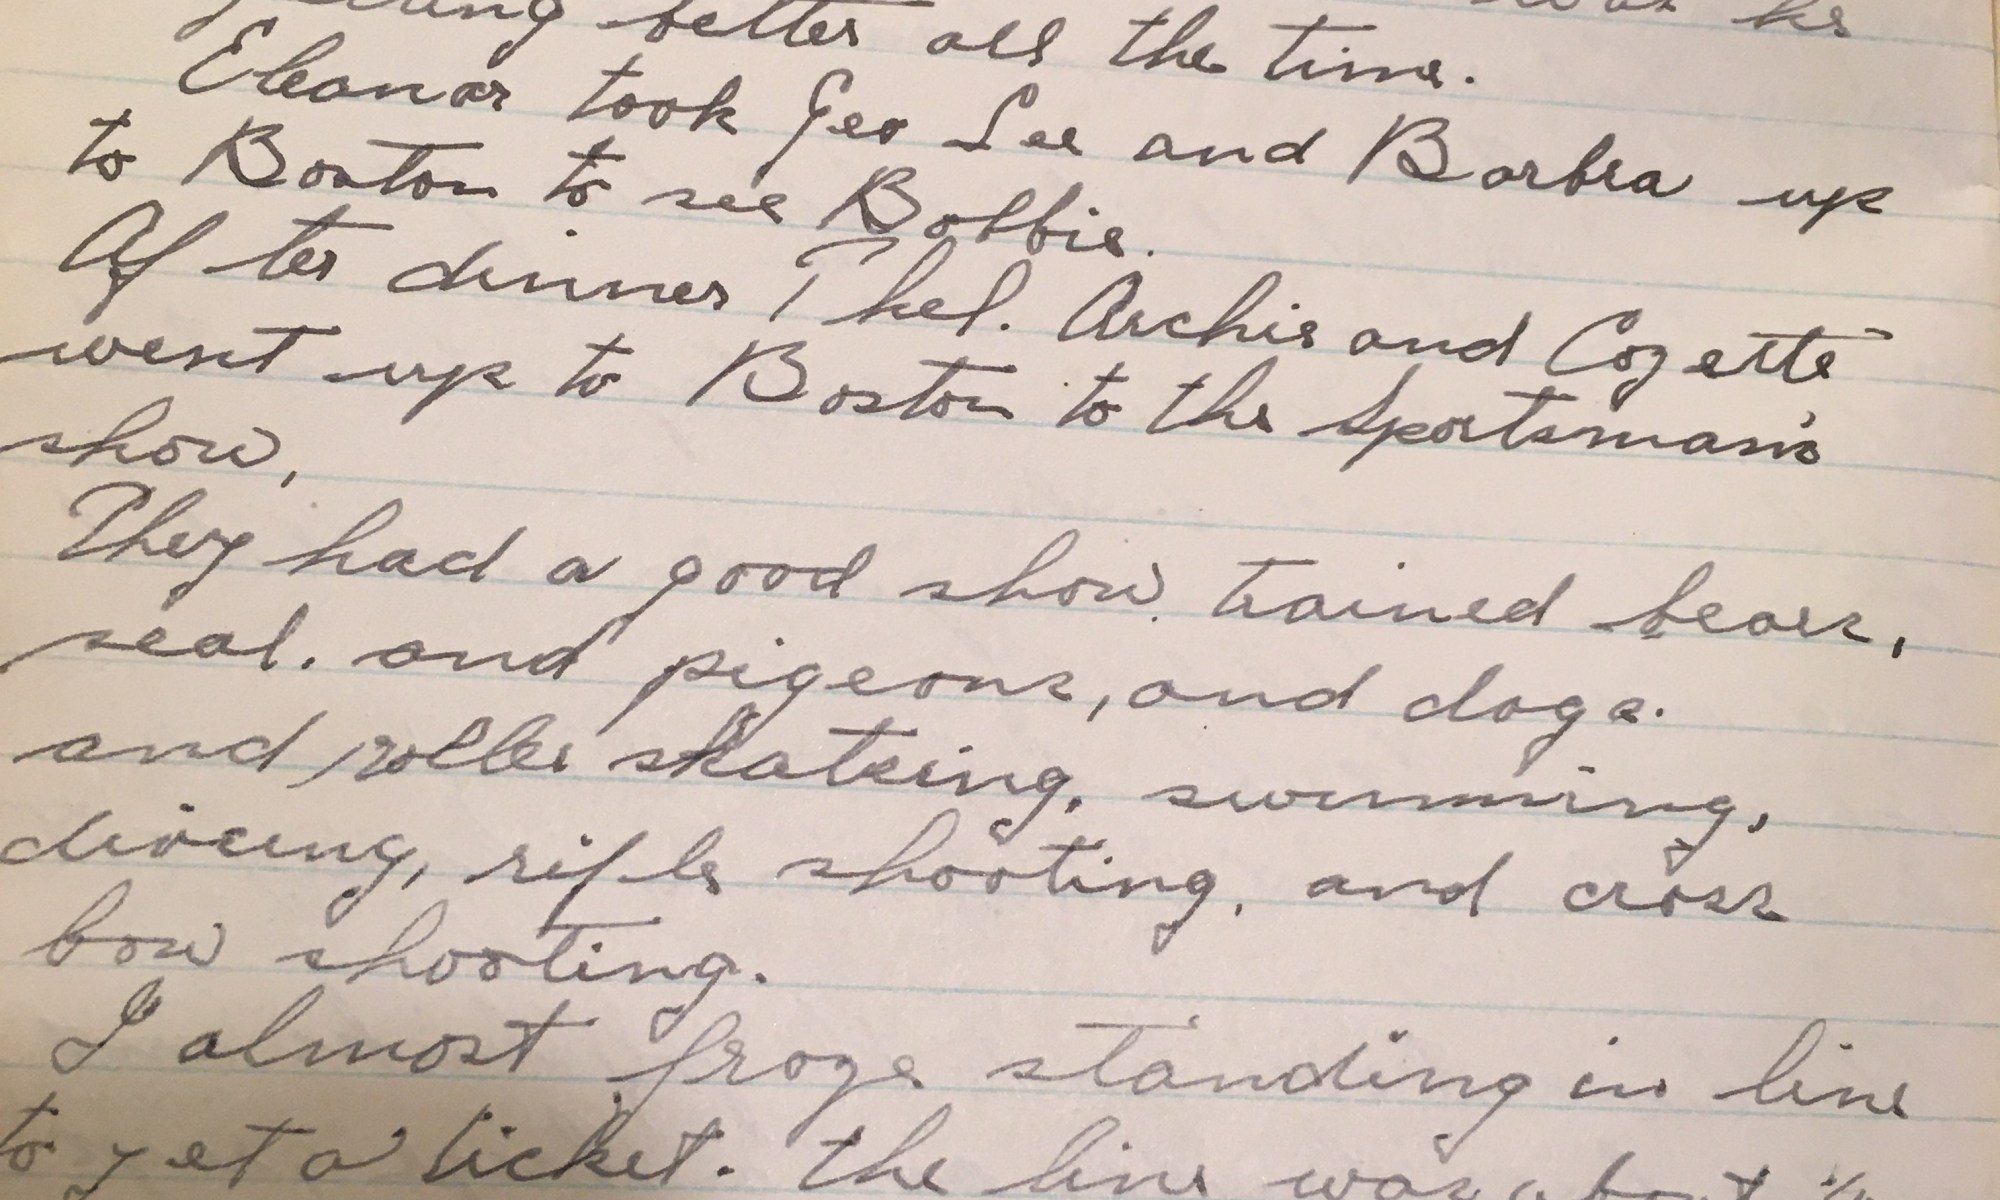 better all the time.
Eleanor took Geo Lee and Barbra up
to Boston to see Bobbie.
After dinner Thel. Archie and Cozette
went up to Boston to the Sportsman's
show,
They had a good show. trained bears,
seal. and pigeons, and dogs.
and roller skateing, swimming,
diveing, rifle shooting, and cross
bow shooting.
I almost froze standing in line
to get a ticket. the line was about